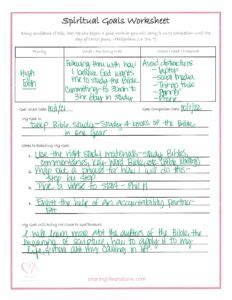 Spiritual Goals Worksheet
Being confident of this, that He who began a good work in you will carry it on to completion until the
day of Christ Jesus. ~Philippians 1:6 (NIV)
Priority
High
Faith
Following Him with how
I believe God wants
me to study the Bible.
Committing to 30min to
1 hr. day in study
Avoid distractions
- laptop
- social media
- Things to do
- Dinner
- Phone
Goal Start Date: 10/1/21
Goal Completion Date: 10/1/22
My Goal is:
Deep Bible Study - Study 4 books of the Bible
in one year
Steps to Reaching My Goal:
1. Use the right study materials - Study Bible,
commentaries, Key Word Bible, etc. (Bible Mapping)
2. Map out a process for how I will do this -
step by step
3. Pick a verse to start - Phil 1:1
4. Enlist the help of an accountability partner
How will Achieving My Goal
I will learn more abt the authors of the Bible, the
beginning of scripture, how to apply it to my
life, & that they are Calling me to
sharingthelifeandlove.com